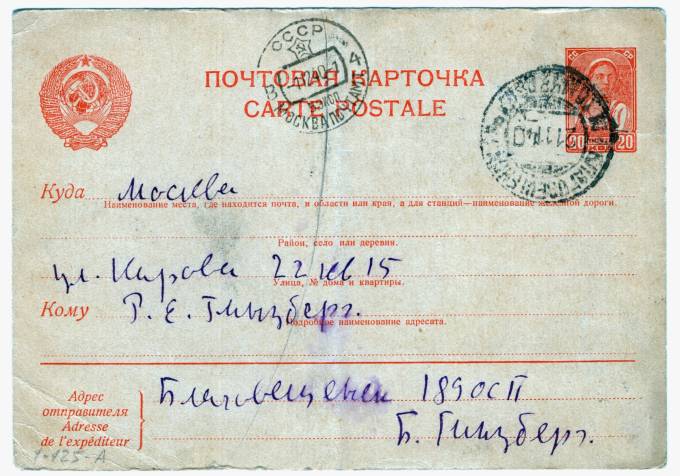 СССР
МОСКВА ПОЧТАМТ
ПОЧТОВАЯ КАРТОЧКА
CARTE POSTALE
20 20
Куда Москва
Наименование места, где находится почта, и области или края, а для станций—наименование железной дороги.
Район, село или деревня.
ул. Кирова 22 кв 15
Улица, № дома и квартиры.
Кому Р. Е. Гинзберг.
Подробное наименование адресата.
Адрес
отправителя
Adresse
de l'expéditeur
Благовещенск 189 ОСП
Б. Гинзберг.
1-125-А